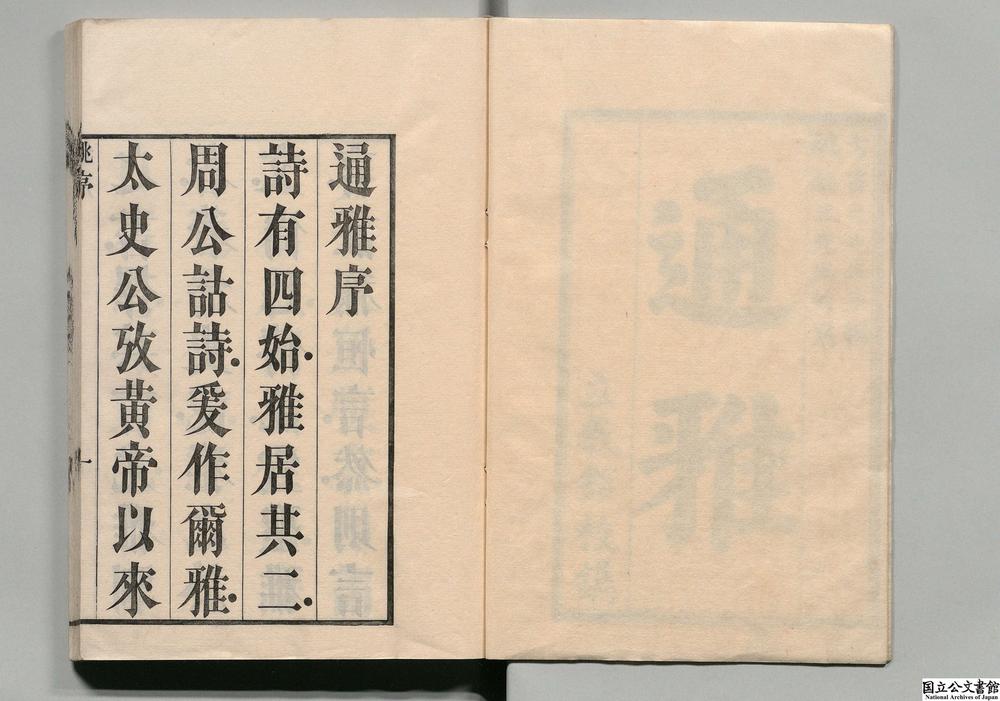 通雅序
詩有四始.雅居其二.
周公詁詩.爰作爾雅.
太史公攷黃帝以來
姚序
一
通雅
国立公文書館
National Archives of Japan